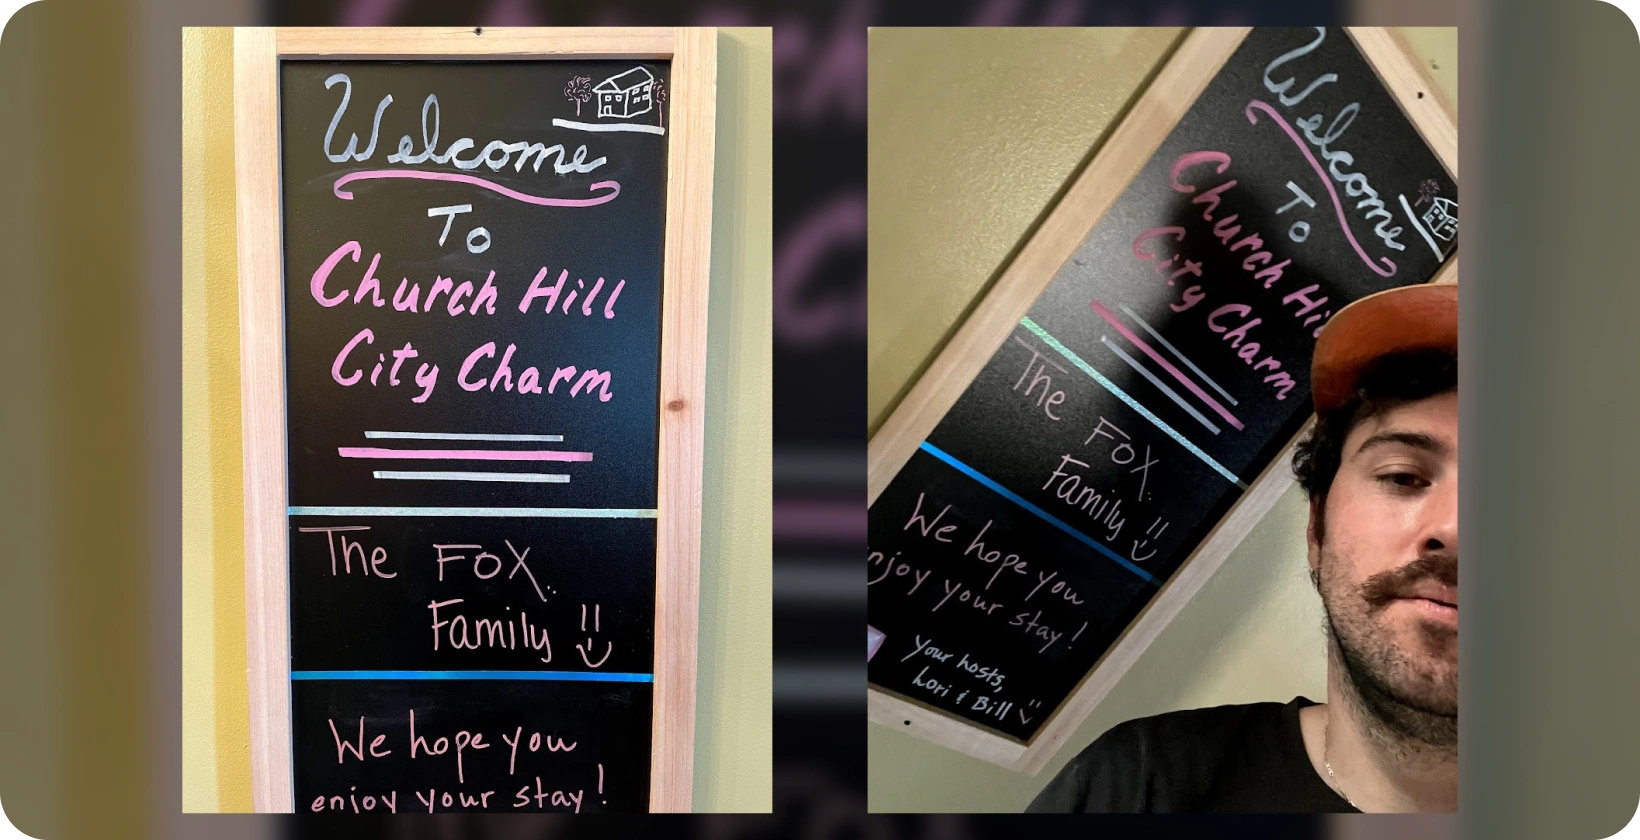 Welcome
To
Church Hill
City Charm
The Fox
Family
We hope you
enjoy your stay!
Welcome
To
Church Hil
City Charm
The Fox
Family
We hope you
njoy your stay!
Your hosts,
Lori & Bill